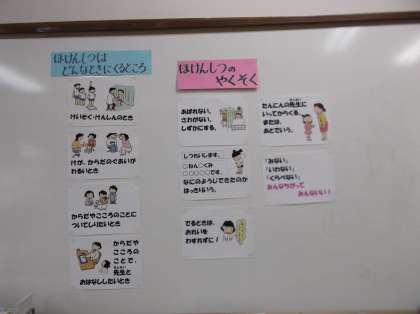 ほけんしつは
どんなときにくるところ
けいそく・けんしんのとき
けが、からだのぐあいが
わるいとき
からだやこころのことに
ついてしりたいとき
からだや
こころの
ことで、
先生と
おはなししたいとき
ほけんしつの
やくそく
あばれない、
さわがない、
しずかにする。
しつれいします。
○ねん○くみ
○○○○○です。
なにのようじできたのか
はっきりいう。
でるときは、
おれいを
わすれずに!
たんにんの先生に
いってからくる。
または、
あとでいう。
「みない」
「いわない」
「くらべない」
みんなちがって
みんないい!